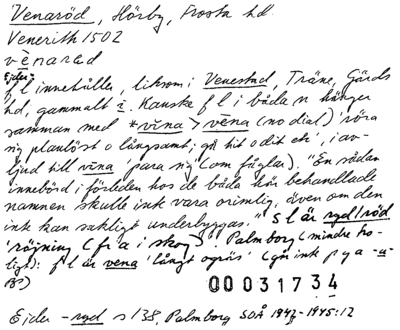 Venaröd, Hörby, Frosta hd.
Venerith 1502
vēnarød
Ejder:
f l innehåller, liksom i Venestad, Träne, Gärds
hd, gammalt i. Kanske f l i båda n hänger
samman med *vīna > vēna (no dial) 'röra
sig planlöst o långsamt; gå hit o dit etc', i av-
ljud till vīna 'para sig (om fåglar). "En sådan
innebörd i förleden hos de båda här behandlade
namnen skulle ink vara orimlig, även om den
ink kan sakligt underbyggas." s l är ryd/röd
'röjning (fi a i skog)'. Palmborg (mindre tro-
ligt): f l är vena 'långt ogräs' (går ink p g a -u-
00031734
Ejder -ryd s 138, Palmborg SOÅ 1942-1945:12